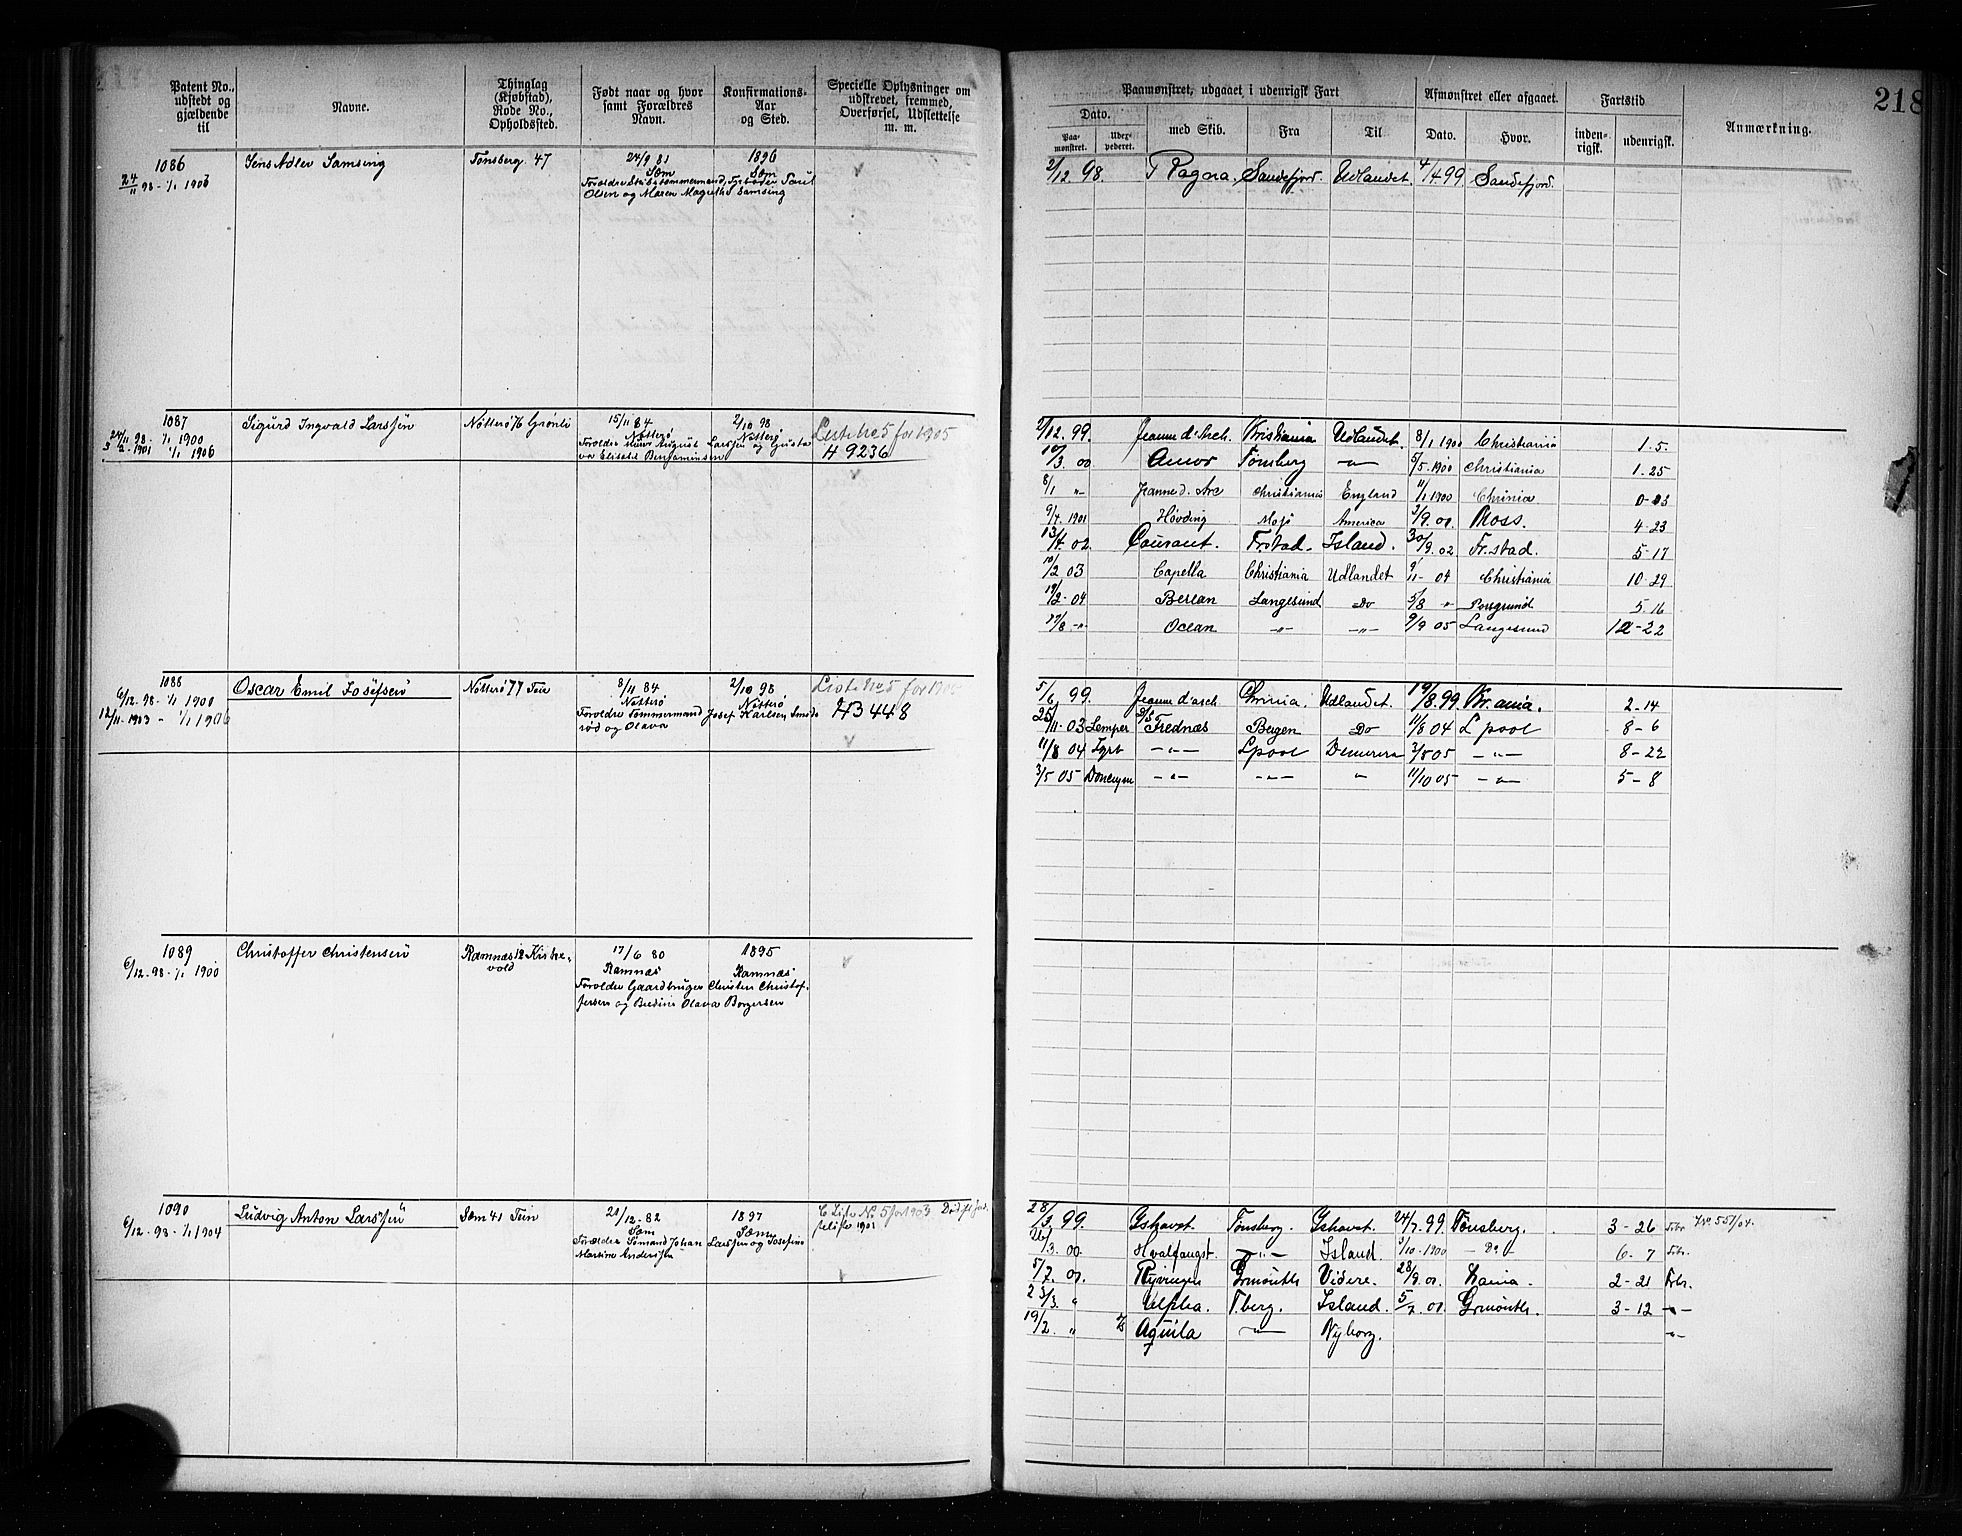 218
Patent No., udstedt og gjældende til
Navne.
Thinglag (Kjøbstad), Rode No., Opholdssted.
Født naar og hvor samt Forældres Navn.
Konfirmations-Aar og Sted.
Specielle Oplysninger om udskrevet, fremmed, Overførsel, Udslettelse m. m.
Paamønstret, udgaaet i udenrigsk Fart
Afmønstret eller afgaaet.
Fartstid
Anmærkning.
Dato.
Paa-mønstret.
Udex-pederet.
med Skib.
Fra
Til
Dato.
Hvor.
inden-rigsk.
udenrigsk.
1086
24/11 98 - 1/1 1903
Jens Adler Samsing
Tønsberg 47
24/9 81
Sem
1896
Sem
Forældre Skibstømmermand
Olsen og Maren Magrethe Samsing
2/12 98. Ragna. Sandefjord. Udlandet. 4/4 99 Sandefjord.
1087
24/11 98 - 1/1 1900
2-1901 1/1 1906
Sigurd Ingvald Larssen
Nøtterø 76 Grønli
15/11 84
Nøtterø
2/10 98
Nøtterø
Forældre August Larssen og Gusta
va Elisabe Benjaminsen
Liste No 5 for 1905
H 9236
2/12. 99. Jeanne d'Arch. Kristiania Udlandet. 8/1 1900 Christiania 1. 5.
10/3. 00 Amor Tønsberg -"- 5/5. 1900 Christiania 1. 25
8/1 " Jeanne d. Arc Christiania England 11/1 1900 Chrinia 0-03
9/4. 1901 Høvding Mosjø America 2/9. 01. Moss. 4-23
13/4. 02. Courant. Frstad. Island. 30/9. 02 Fr.stad. 5-17
10/2 03 Capella Christiania Udlandet 9/11 - 04 Christiania 10-29
19/2 - 04 Berean Langesund Do 5/8 " Porsgrund 5. 16
17/8 -"- Ocean -"- -"- 9/9 05 Langesund 12-22
1088
6/12. 98. 1/1 1900
12/11. 1903 - 1/1 1906
Oscar Emil Josefsen
Nøtterø 77 Teie
8/11 84
Nøtterø
2/10 98
Nøtterø
Forældre Tømmermand Josef Karlsen Smids
rød og Olava
Liste No 5 for 1905
H3 448
5/6 99. Jeanne d'arch Chrinia. Udlandet. 19/8. 99 Kr.ania. 2-14
25/11 - 03 D/S Frednæs Bergen Do 11/8 04 L pool 8-6
11/8 04 -"- Lpool Demerera 3/5 05 -"- 8-22
3/5 05 -"- -"- " 11/10 05 -"- 5-8
1089
6/12. 98. 1/1 1900
Christoffer Christensen
Ramnæs 12 Kirke-
vold
17/6 80
Ramnæs
1895
Ramnæs
Forældre Gaardbruger Christen Christof-
fersen og Bredine Olava Borgersen
1090
6/12. 98 - 1/1 1904
Ludvig Anton Larssen
Sem 41 Teien
21/12. 82
Sem
1897
Sem
Forældre Sømand Johan Larssen og Josefine
Martine Andersen
C Liste No. 5 for 1903
28/3. 99. Ishavet. Tønsberg. Ishavet. 24/7. 99 Tønsberg. 3-26 No. 551/04.
26/3. 00 Hvalfangst. -"- Island. 3/10 - 1900 - Do - 6-7
5/7. 01. Ryvingen Grmonth Videre. 28/9. 01. 2-21
23/3. " Alpha. T.berg. Island. 5/7 01 Grmonth. 3-12 -"-
19/2. " Aquila -"- Nyborg. -"-